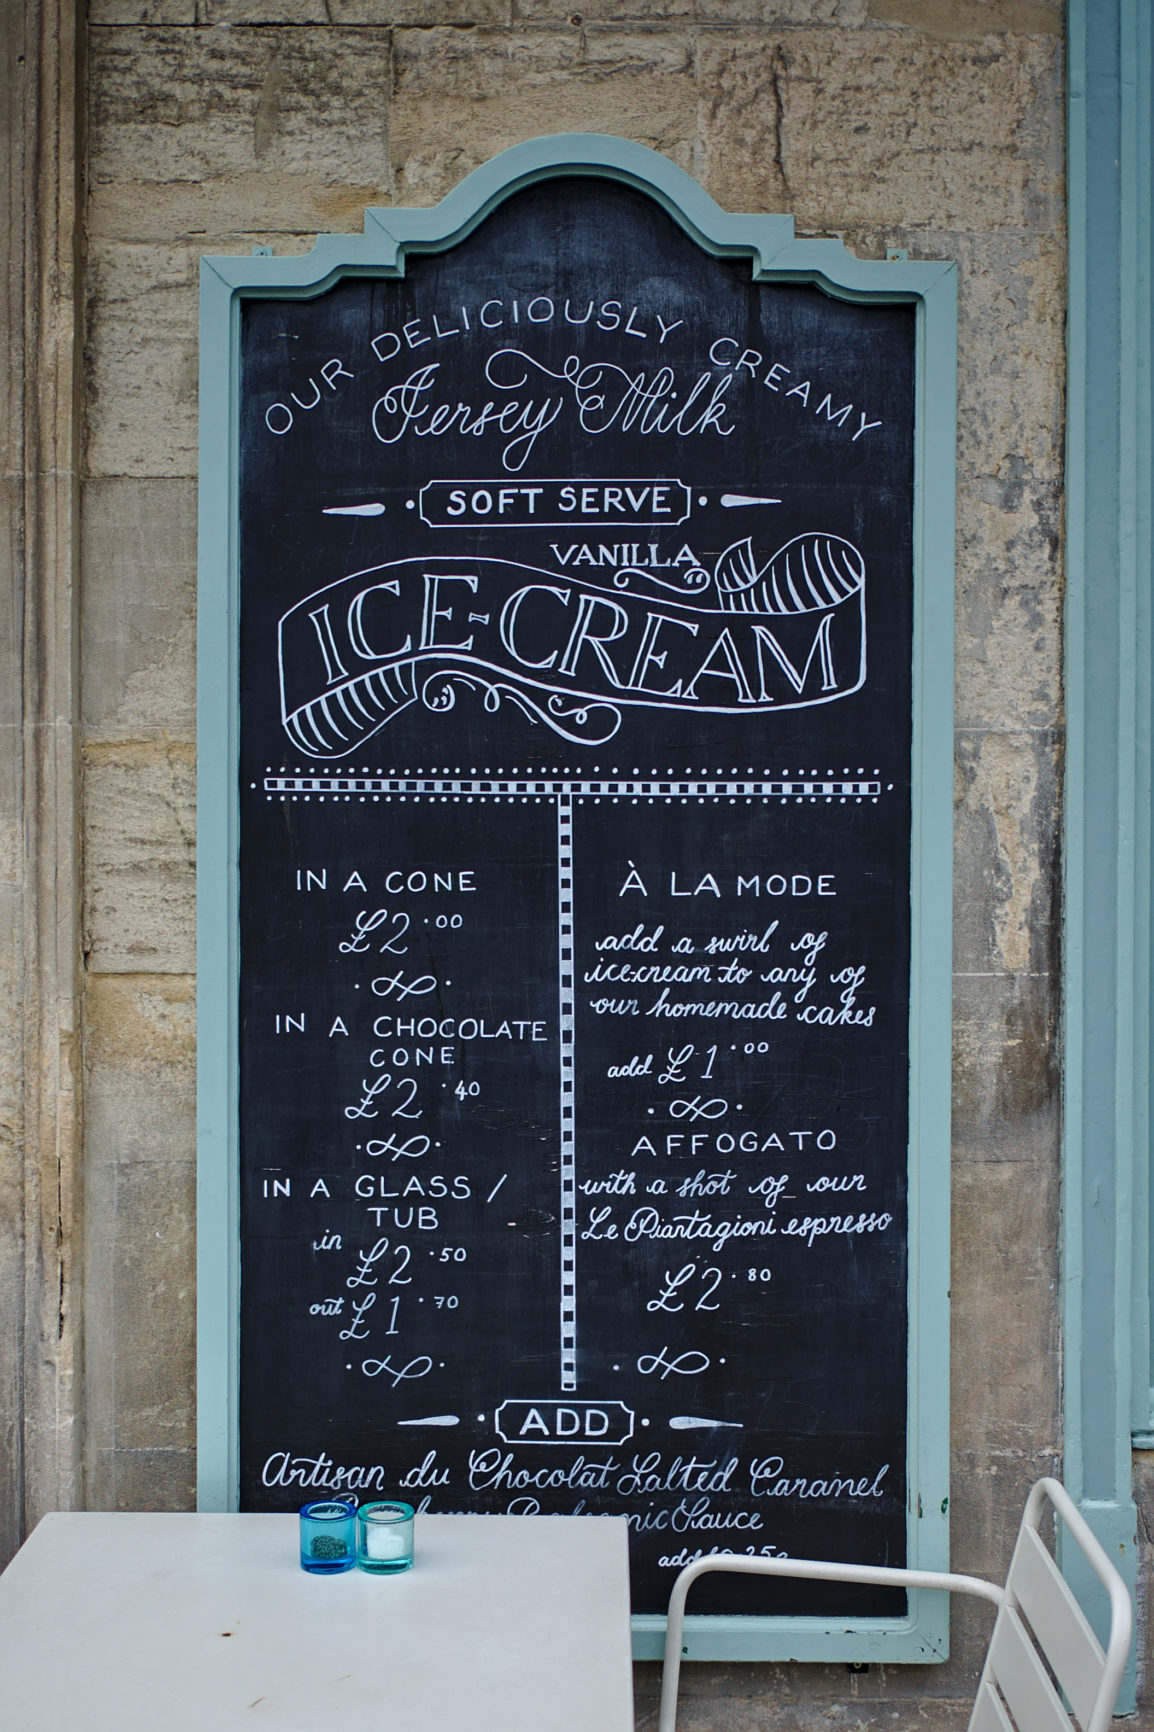 OUR DELICIOUSLY CREAMY
Jersey Milk
SOFT SERVE
VANILLA
ICE-CREAM
IN A CONE
£2.00
IN A CHOCOLATE
CONE
£2.40
IN A GLASS /
TUB
in £2.50
out £1.70
À LA MODE
add a swirl of
ice-cream to any of
our homemade cakes
add £1.00
AFFOGATO
with a shot of our
Le Piantagioni espresso
£2.80
ADD
Artisan du Chocolat Salted Caramel
Sauce
add